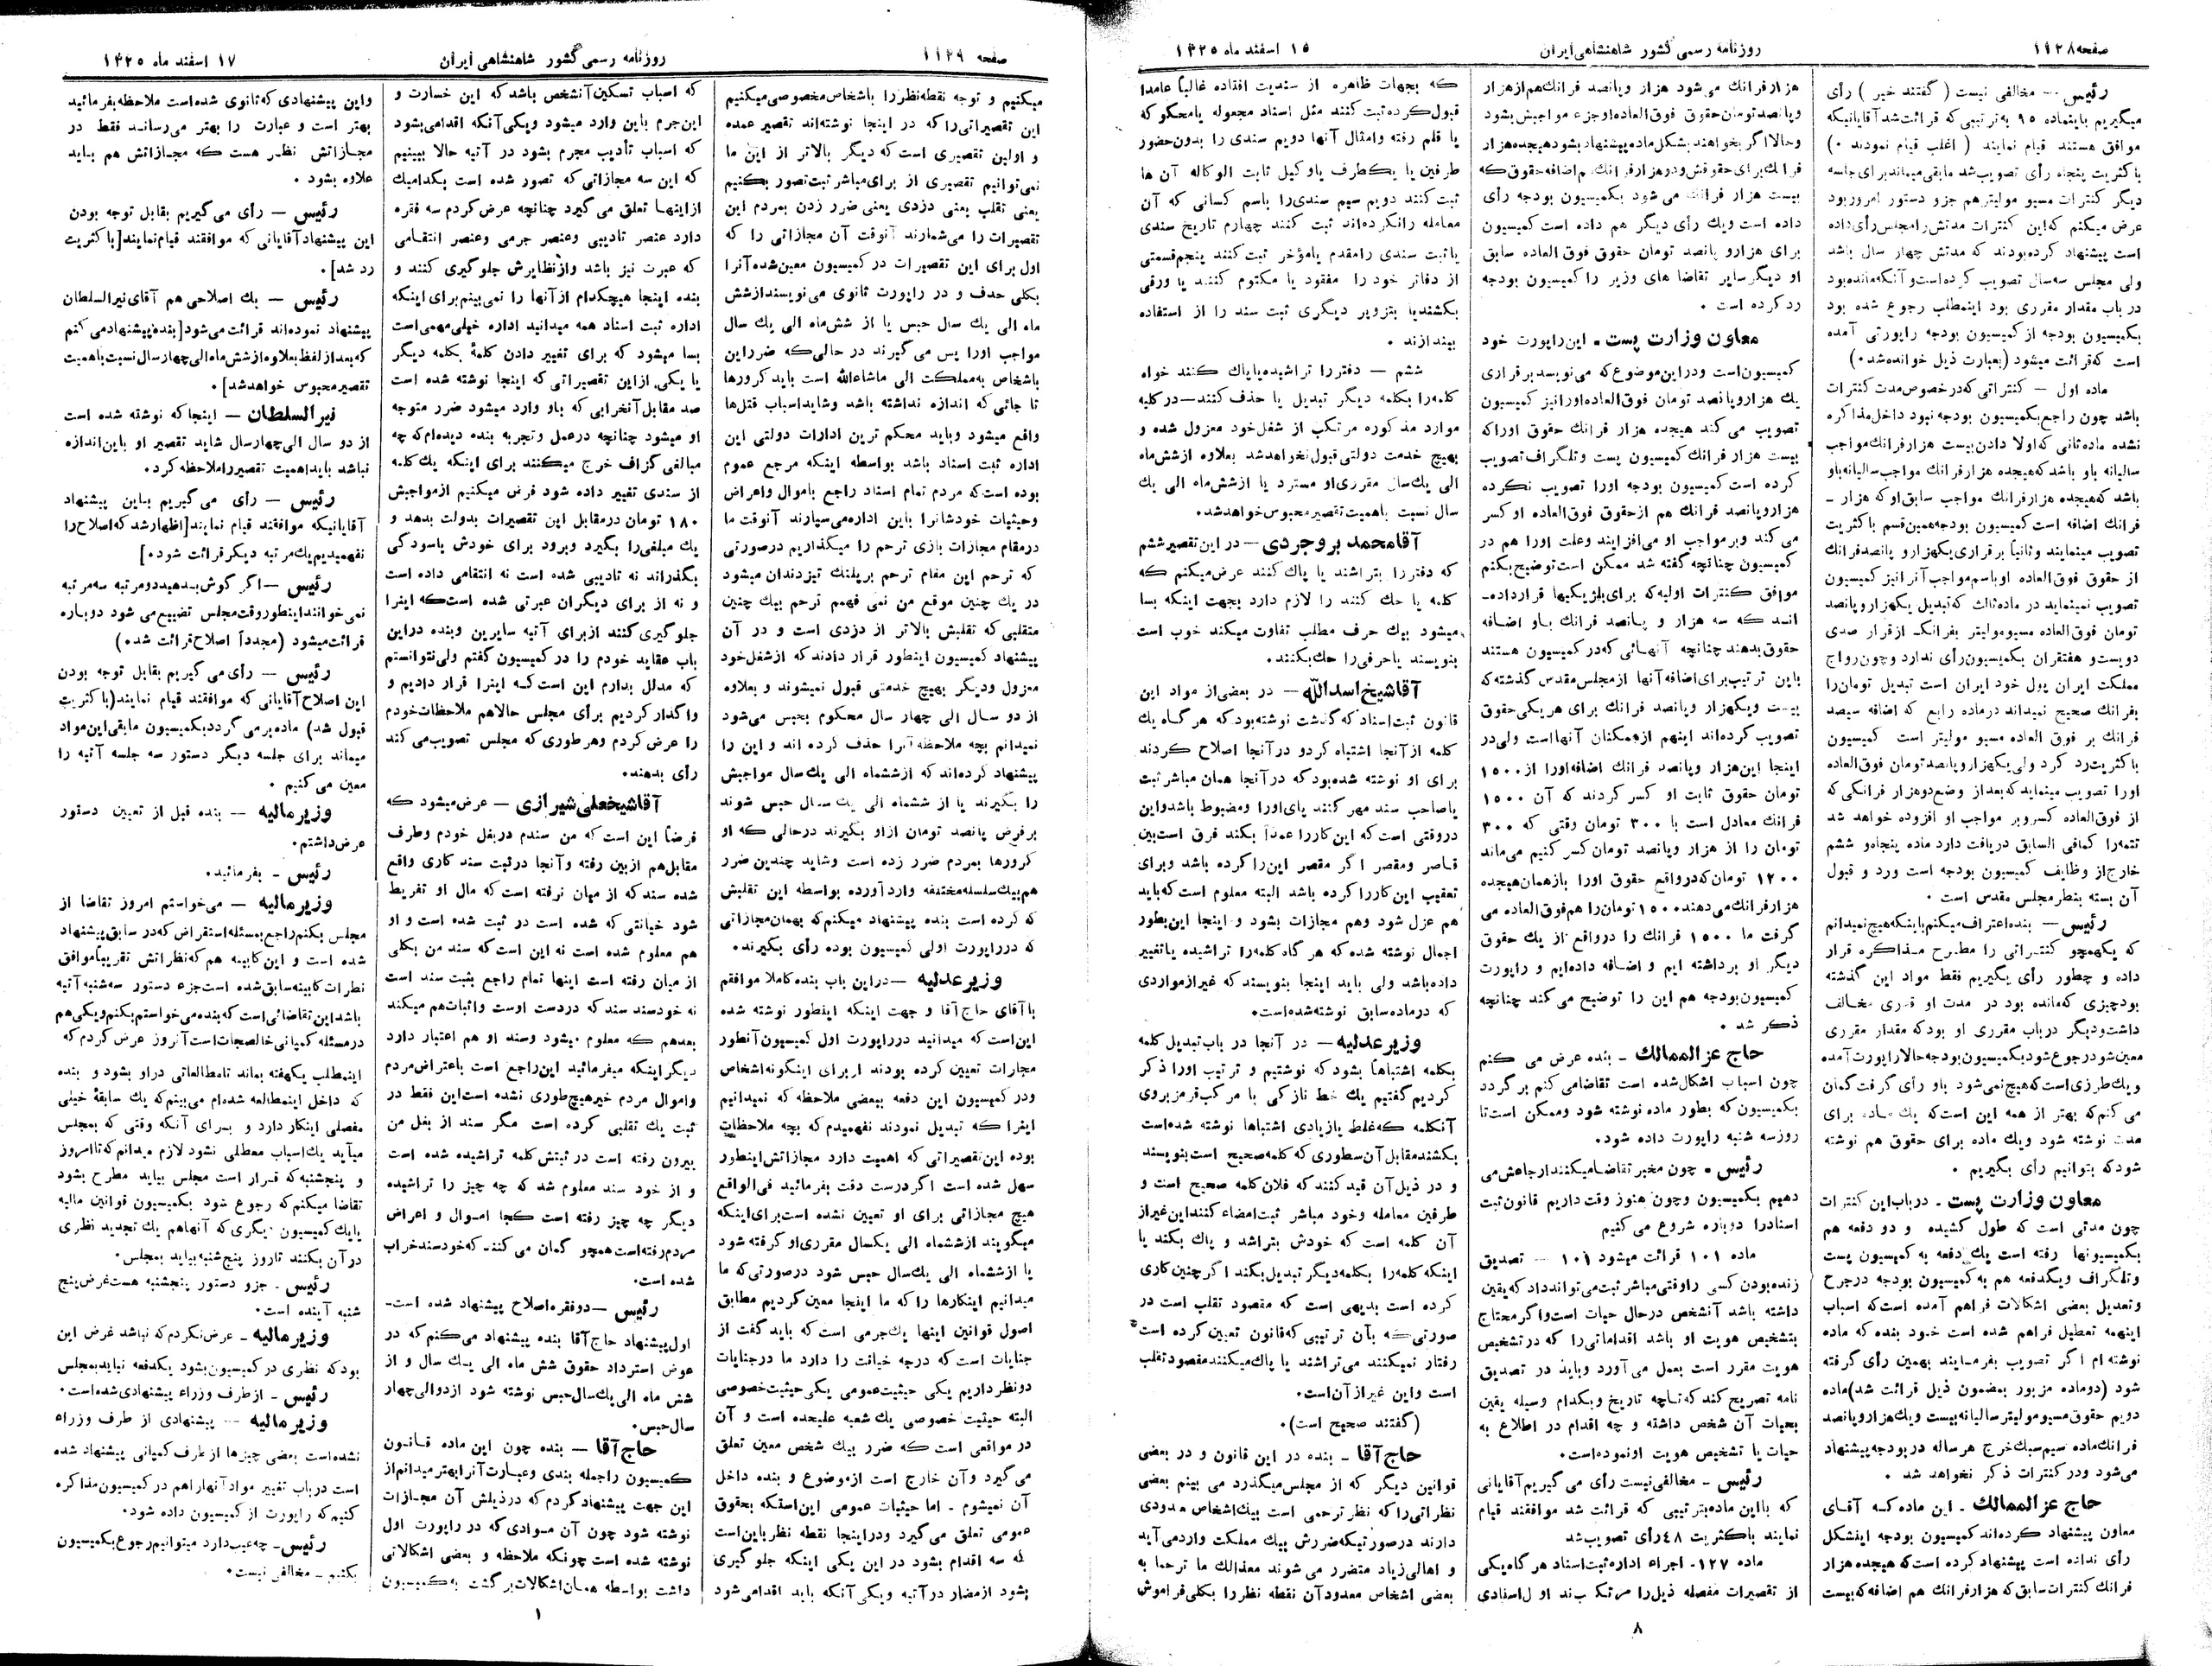 صفحه ۱۱۲۸
روزنامه رسمی کشور شاهنشاهی ایران
۱۵ اسفند ماه ۱۳۲۵
رئیس — مخالفی نیست ( گفتند خیر ) رأی
میگیریم باینماده ۹۵ به‌ترتیبی که قرائت‌شد آقایانیکه
موافق هستند قیام نمایند ( اغلب قیام نمودند ۰ )
باکثریت پنجاه رأی تصویب‌شد مابقی میماند برای جلسه
دیگر کنترات مسیو مولیترهم جزو دستور امروز بود
عرض میکنم که‌این کنترات مدتش را مجلس رأی داده
است پیشنهاد کرده‌بودند که مدتش چهار سال باشد
ولی مجلس سه‌سال تصویب کرده‌است وآنکه‌مانده‌بود
درباب مقدار مقرری بود اینمطلب رجوع شده بود
بکمیسیون بودجه از کمیسیون بودجه راپورتی آمده
است که‌قرائت میشود (بعبارت ذیل خوانده‌شد۰)
ماده اول — کنتراتی که‌درخصوص مدت کنترات
باشد چون راجع بکمیسیون بودجه نبود داخل مذاکره
نشده ماده ثانی که اولا دادن بیست هزارفرانك مواجب
سالیانه باو باشد که هیجده هزارفرانك مواجب سالیانه‌باو
باشد که هیجده هزارفرانك مواجب سابق او که هزار ـ
فرانك اضافه است کمیسیون بودجه همین قسم باکثریت
تصویب مینمایند وثانیاً برقراری یکهزارو پانصد فرانك
از حقوق فوق‌العاده او باسم مواجب آنرا نیز کمیسیون
تصویب نمینماید در ماده‌ثالث که تبدیل یکهزارو پانصد
تومان فوق‌العاده مسیومولیتر بفرانك ازقرار صدی
دویست و هفتقران بکمیسیون رأی ندارد وچون رواج
مملکت ایران پول خود ایران است تبدیل تومان را
بفرانك صحیح نمیداند درماده رابع که اضافه سیصد
فرانك بر فوق العاده مسیو مولیتر است کمیسیون
باکثریت رد کرد ولی یکهزارو پانصدتومان فوق‌العاده
اورا تصویب مینماید که بعد از وضع دوهزار فرانکی که
از فوق‌العاده کسر و بر مواجب او افزوده خواهد شد
تتمه‌را کمافی السابق دریافت دارد ماده پنجاه‌و ششم
خارج از وظایف کمیسیون بودجه است ورد و قبول
آن بسته بنظر مجلس مقدس است ۰
رئیس — بنده اعتراف میکنم باینکه هیچ نمیدانم
که یکهمچو کنتراتی را مطرح مذاکره قرار
داده و چطور رأی بگیریم فقط مواد این گذشته
بودچیزی که‌مانده بود در مدت او قدری مخالف
داشت و دیگر درباب مقرری او بود که مقدار مقرری
معین شود رجوع شود بکمیسیون بودجه حالا راپورت آمده
و یك طرزی است که هیچ نمی‌شود باو رأی گرفت گمان
می کنم که بهتر از همه این است که یك ماده برای
مدت نوشته شود ویك ماده برای حقوق هم نوشته
شود که بتوانیم رأی بگیریم ۰
معاون وزارت پست ـ درباب این کنترات
چون مدتی است که طول کشیده و دو دفعه هم
بکمیسیونها رفته است یك دفعه به کمیسیون پست
وتلگراف ویکدفعه هم به کمیسیون بودجه درجرح
وتعدیل بعضی اشکالات فراهم آمده است که اسباب
اینهمه تعطیل فراهم شده است خود بنده که ماده
نوشته ام اگر تصویب بفرمایند بهمین رأی گرفته
شود (دوماده مزبور بمضمون ذیل قرائت شد) ماده
دویم حقوق مسیومولیتر سالیانه بیست ویك هزارو پانصد
فرانك ماده سیم سبك خرج هرساله دربودجه پیشنهاد
می‌شود ودر کنترات ذکر نخواهد شد ۰
حاج عزالممالك ـ این ماده کـه آقـای
معاون پیشنهاد کرده‌اند کمیسیون بودجه اینشکل
رأی نداده است پیشنهاد کرده است که هیجده هزار
فرانك کنترات سابق که هزارفرانك هم اضافه که بیست
هزارفرانك می‌شود هزار وپانصد فرانك هم از هزار
وپانصدتومان حقوق فوق‌العاده او جزء مواجبش بشود
وحالا اگر بخواهند بشکل ماده پیشنهاد بشود هیجده هزار
فرانك برای حقوقش و دوهزار فرانك هم اضافه حقوق که
بیست هزار فرانك می شود بکمیسیون بودجه رأی
داده است ویك رأی دیگر هم داده است کمیسیون
برای هزارو پانصد تومان حقوق فوق العاده سابق
او دیگر سایر تقاضا های وزیر را کمیسیون بودجه
رد کرده است ۰
معاون وزارت پست ـ این راپورت خود
کمیسیون است ودراین موضوع که می‌نویسد برقراری
یك هزاروپانصد تومان فوق‌العاده اورا نیز کمیسیون
تصویب می کند هیجده هزار فرانك حقوق اوراکه
بیست هزار فرانك کمیسیون پست وتلگراف تصویب
کرده است کمیسیون بودجه اورا تصویب نکرده
هزاروپانصد فرانك هم از حقوق فوق‌العاده او کسر
می کند وبر مواجب او می‌افزایند وعلت اورا هم در
کمیسیون چنانچه گفته شد ممکن است توضیح بکنم
موافق کنترات اولیه که برای بلژیکیها قرارداده‌ـ
انـد کـه سه هزار و پـانصد فرانك بـاو اضـافه
حقوق بدهند چنانچه آنهـائی که‌در کمیسیون هستند
باین ترتیب برای اضافه آنها از مجلس مقدس گذشته که
بیست ویکهزار وپانصد فرانك برای هریکی حقوق
تصویب کرده‌اند اینهم از همگنان آنهااست ولی در
اینجا این هزار وپانصد فرانك اضافه اورا از ۱۵۰۰
تومان حقوق ثابت او کسر کردند که آن ۱۵۰۰
فرانك معادل است با ۳۰۰ تومان وقتی که ۳۰۰
تومان را از هزار وپانصد تومان کسر کنیم می‌ماند
۱۲۰۰ تومان که‌درواقع حقوق اورا بازهمان هیجده
هزار فرانك می‌دهند ۱۵۰۰ تومان را هم فوق‌العاده می
گرفت ما ۱۵۰۰ فرانك را درواقع از یك حقوق
دیگر او برداشته ایم و اضافه داده‌ایم و راپورت
کمیسیون بودجه هم این را توضیح می‌کند چنانچه
ذکر شد ۰
حاج عزالممالك ـ بنده عرض می کنم
چون اسباب اشکال شده است تقاضا می کنم برگردد
بکمیسیون که بطور ماده نوشته شود وممکن است تا
روز سه شنبه راپورت داده شود۰
رئیس ـ چون مخبر تقاضا میکنند ارجاعش می
دهیم بکمیسیون وچون هنوز وقت داریم قانون ثبت
اسنادرا دوباره شروع می کنیم
ماده ۱۰۱ قرائت میشود ۱۰۱ — تصدیق
زنده‌بودن کسی راوقتی مباشر ثبت می‌تواند داد که یقین
داشته باشد آنشخص درحال حیات است واگر محتاج
بتشخیص هویت او باشد اقداماتی را که در تشخیص
هویت مقرر است بعمل می آورد وباید در تصدیق
نامه تصریح کند که تاچه تاریخ و بکدام وسیله یقین
بحیات آن شخص داشته و چه اقدام در اطلاع به
حیات یا تشخیص هویت اونموده است۰
رئیس ـ مخالفی‌نیست رأی می گیریم آقایانی
که بااین ماده بترتیبی که قرائت شد موافقند قیام
نمایند باکثریت ۴۸رأی تصویب شد
ماده ۱۲۷ـ اجزاء اداره ثبت اسناد هر گاه یکی
از تقصیرات مفصله ذیل را مرتکب شوند اول اسنادی
که بجهات ظاهره از سندیت افتاده غالباً عامدا
قبول کرده ثبت کنند مثل اسناد مجعوله یامحکو که
یا قلم رفته وامثال آنها دویم سندی را بدون حضور
طرفین یا یکطرف یا وکیل ثابت الوکاله آن ها
ثبت کنند دویم سیم سندی‌را باسم کسانی که آن
معامله رانکرده‌اند ثبت کنند چهارم تاریخ سندی
یاثبت سندی رامقدم یامؤخر ثبت کنند پنجم قسمتی
از دفاتر خود را مفقود یا مکتوم کنند یا ورقی
بکشندیا بتزویر دیگری ثبت سند را از استفاده
بیندازند ۰
ششم — دفتررا تراشیده یا پاك کنند خواه
کلمه‌را بکلمه دیگر تبدیل یا حذف کنند—درکلیه
موارد مذکوره مرتکب از شغل خود معزول شده و
بهیچ خدمت دولتی قبول نخواهدشد بعلاوه ازشش ماه
الی یك سال مقرری او مسترد یا ازشش ماه الی یك
سال نسبت باهمیت تقصیر محبوس خواهدشد۰
آقامحمد بروجردی — در این تقصیر ششم
که دفتررا بتراشند یا پاك کنند عرض میکنم که
کلمه یا حك کنند را لازم دارد بجهت اینکه بسا
میشود بیك حرف مطلب تفاوت میکند خوب است
بنویسند یاحرفی‌را حك بکنند۰
آقاشیخ اسدالله — در بعضی از مواد این
قانون ثبت اسناد که گذشت نوشته بود که هر گاه یك
کلمه از آنجا اشتباه کردو درآنجا اصلاح کردند
برای او نوشته شده‌بود که درآنجا همان مباشر ثبت
یاصاحب سند مهر کنند پای‌اورا ومضبوط باشد واین
دروقتی است که این کاررا عمداً بکند فرق است بین
قاصر ومقصر اگر مقصر این‌را کرده باشد وبرای
تعقیب این کاررا کرده باشد البته معلوم است که‌باید
هم عزل شود وهم مجازات بشود و اینجا این بطور
اجمال نوشته شده که هر گاه کلمه‌را تراشیده یا تغییر
داده‌باشد ولی باید اینجا بنویسند که غیر از مواردی
که درماده سابق نوشته شده‌است۰
وزیر عدلیه — در آنجا در باب تبدیل کلمه
بکلمه اشتباهاً بشود که نوشتیم و ترتیب اورا ذکر
کردیم گفتیم یك خط نازکی با مرکب قرمز بروی
آنکلمه که غلط یازیادی اشتباها نوشته شده‌است
بکشند مقابل آن سطوری که کلمه صحیح است بنویسند
و در ذیل آن قید کنند که فلان کلمه صحیح است و
طرفین معامله وخود مباشر ثبت امضاء کنند این غیر از
آن کلمه است که خودش بتراشد و پاك بکند یا
اینکه کلمه‌را بکلمه دیگر تبدیل بکند اگر چنین کاری
کرده است بدیهی است که مقصود تقلب است در
صورتی که بآن ترتیبی که قانون تعیین کرده است
رفتار نمیکنند می‌تراشند یا پاك میکنند مقصود تقلب
است واین غیر از آن است۰
(گفتند صحیح است)۰
حاج آقا ـ بنده در این قانون و در بعضی
قوانین دیگر که از مجلس میگذرد می بینم بعضی
نظراتی‌را که نظر ترحمی است بیك اشخاص معدودی
دارند درصورتیکه ضررش بیك مملکت وارد می آید
و اهالی زیاد متضرر می شوند معذالك ما ترحما به
بعضی اشخاص معدود آن نقطه نظر را بکلی فراموش
۸
صفحه ۱۱۲۹
روزنامه رسمی کشور شاهنشاهی ایران
۱۷ اسفند ماه ۱۳۲۵
میکنیم و توجه نقطه نظر را باشخاص مخصوصی میکنیم
این تقصیراتی را که در اینجا نوشته‌اند تقصیر عمده
و اولین تقصیری است که دیگر بالاتر از این ما
نمی‌توانیم تقصیری از برای مباشر ثبت تصور بکنیم
یعنی تقلب یعنی دزدی یعنی ضرر زدن بمردم این
تقصیرات را می‌شمارند آنوقت آن مجازاتی را که
اول برای این تقصیرات در کمیسیون معین شده آنرا
بکلی حذف و در راپورت ثانوی می‌نویسند ازشش
ماه الی یك سال حبس یا از شش ماه الی یك سال
مواجب اورا پس می گیرند در حالی که ضرر این
باشخاص به مملکت الی ماشاءالله است باید کرورها
تا جائی که اندازه نداشته باشد وشاید اسباب قتل‌ها
واقع میشود وباید محکم ترین ادارات دولتی این
اداره ثبت اسناد باشد بواسطه اینکه مرجع عموم
بوده است که مردم تمام اسناد راجع باموال واعراض
وحیثیات خودشانرا باین اداره می‌سپارند آنوقت ما
درمقام مجازات بازی ترحم را میگذاریم درصورتی
که ترحم این مقام ترحم برپلنك تیزدندان میشود
در یك چنین موقع من نمی فهمم ترحم بیك چنین
متقلبی که تقلبش بالاتر از دزدی است و در آن
پیشنهاد کمیسیون اینطور قرار دادند که ازشغل خود
معزول ودیگر بهیچ خدمتی قبول نمیشوند و بعلاوه
از دو سال الی چهار سال محکوم بحبس می‌شود
نمیدانم بچه ملاحظه آنرا حذف کرده اند و این را
پیشنهاد کرده‌اند که ازششماه الی یك سال مواجبش
را بگیرند یا از ششماه الی یك سال حبس شوند
برفرض پانصد تومان ازاو بگیرند درحالی که او
کرورها بمردم ضرر زده است وشاید چندین ضرر
هم بیك سلسله مختلفه وارد آورده بواسطه این تقلبش
که کرده است بنده پیشنهاد میکنم که بهمان مجازاتی
که درراپورت اولی کمیسیون بوده رأی بگیرند۰
وزیر عدلیه —دراین باب بنده کاملا موافقم
با آقای حاج آقا و جهت اینکه اینطور نوشته شده
این است که میدانید درراپورت اول کمیسیون آنطور
مجازات تعیین کرده بودند از برای اینگونه اشخاص
ودر کمیسیون این دفعه ببعضی ملاحظه که نمیدانیم
اینرا که تبدیل نمودند نفهمیدم که بچه ملاحظات
بوده این تقصیراتی که اهمیت دارد مجازاتش اینطور
سهل شده است اگر درست دقت بفرمائید فی‌الواقع
هیچ مجازاتی برای او تعیین نشده است برای اینکه
میگویند ازششماه الی یکسال مقرری او گرفته شود
یا ازششماه الی یك سال حبس شود درصورتی که ما
میدانیم اینکارها را که ما اینجا معین کردیم مطابق
اصول قوانین اینها یك جرمی است که باید گفت از
جنایات است که درجه خیانت را دارد ما درجنایات
دونظر داریم یکی حیثیت عمومی یکی حیثیت خصوصی
البته حیثیت خصوصی یك شعبه علیحده است و آن
در مواقعی است که ضرر بیك شخص معین تعلق
می گیرد و آن خارج است از موضوع و بنده داخل
آن نمیشوم ـ اما حیثیات عمومی این استکه بحقوق
عمومی تعلق می گیرد ودراینجا نقطه نظر باین است
که سه اقدام بشود در این یکی اینکه جلوگیری
بشود ازمضار درآتیه ویکی آنکه باید اقدامی شود
که اسباب تسکین آنشخص باشد که این خسارت و
این جرم باین وارد میشود ویکی آنکه اقدامی بشود
که اسباب تأدیب مجرم بشود در آتیه حالا ببینیم
که این سه مجازاتی که تصور شده است بکدامیك
ازاینها تعلق می گیرد چنانچه عرض کردم سه فقره
دارد عنصر تادیبی وعنصر جرمی وعنصر انتقامی
که عبرت نیز باشد وازنظایرش جلوگیری کنند و
بنده اینجا هیچکدام از آنها را نمی‌بینم برای اینکه
اداره ثبت اسناد همه میدانید اداره خیلی مهمی است
بسا میشود که برای تغییر دادن کلمهٔ بکلمه دیگر
یا یکی ازاین تقصیراتی که اینجا نوشته شده است
صد مقابل آنخرابی که باو وارد میشود ضرر متوجه
او میشود چنانچه درعمل وتجربه بنده دیده‌ام که چه
مبالغی گزاف خرج میکنند برای اینکه یك کلمه
از سندی تغییر داده شود فرض میکنیم ازمواجبش
۱۸۰ تومان درمقابل این تقصیرات بدولت بدهد و
یك مبلغی‌را بگیرد وبرود برای خودش باسودگی
بگذراند نه تادیبی شده است نه انتقامی داده است
و نه از برای دیگران عبرتی شده است که اینرا
جلوگیری کنند ازبرای آتیه سایرین وبنده دراین
باب عقاید خودم را در کمیسیون گفتم ولی نتوانستم
که مدلل بدارم این است کـه اینرا قرار دادیم و
واگذار کردیم برأی مجلس حالاهم ملاحظات خودم
را عرض کردم وهر طوری که مجلس تصویب می کند
رأی بدهند۰
آقاشیخعلی شیرازی — عرض میشود که
فرضاً این است که من سندم دربغل خودم وطرف
مقابل هم ازبین رفته وآنجا درثبت سند کاری واقع
شده سند که از میان نرفته است که مال او تفریط
شود خیانتی که شده است در ثبت شده است و او
هم معلوم شده است نه این است که سند من بکلی
از میان رفته است اینها تمام راجع بثبت سند است
نه خودسند سند که دردست اوست واثبات هم میکند
بعدهم که معلوم میشود وسند او هم اعتبار دارد
دیگر اینکه میفرمائید این راجع است باعتراض مردم
واموال مردم خیر هیچ طوری نشده است این فقط در
ثبت یك تقلبی کرده است مگر سند از بغل من
بیرون رفته است در ثبتش کلمه تراشیده شده است
و از خود سند معلوم شد که چه چیز را تراشیده
دیگر چه چیز رفته است کجا امـوال و اعراض
مردم رفته است همچو گمان می کنند که خود سند خراب
شده است۰
رئیس —دوفقره اصلاح پیشنهاد شده است‌ـ
اول پیشنهاد حاج آقا بنده پیشنهاد می‌کنم که در
عوض استرداد حقوق شش ماه الی یك سال و از
شش ماه الی یك سال حبس نوشته شود ازدوالی چهار
سال حبس۰
حاج آقا — بنده چون این ماده قانون
کمیسیون راجمله بندی وعبارت آنرا بهتر میدانم از
این جهت پیشنهاد کردم که درذیلش آن مجازات
نوشته شود چون آن موادی که در راپورت اول
نوشته شده است چونکه ملاحظه و بعضی اشکالاتی
داشت بواسطه همان اشکالات برگشت به کمیسیون
واین پیشنهادی که ثانوی شده است ملاحظه بفرمائید
بهتر است و عبارت را بهتر می‌رساند فقط در
مجازاتش نظر هست که مجازاتش هم باید
علاوه بشود ۰
رئیس — رأی می گیریم بقابل توجه بودن
این پیشنهاد آقایانی که موافقند قیام نمایند[باکثریت
رد شد] ۰
رئیس — یك اصلاحی هم آقای نیرالسلطان
پیشنهاد نموده‌اند قرائت می‌شود[بنده پیشنهاد می کنم
که بعد از لفظ بعلاوه ازشش ماه الی چهارسال نسبت باهمیت
تقصیر محبوس خواهد شد] ۰
نیرالسلطان — اینجا که نوشته شده است
از دو سال الی چهار سال شاید تقصیر او باین اندازه
نباشد باید اهمیت تقصیررا ملاحظه کرد۰
رئیس — رأی می گیریم بـاین پیشنهاد
آقایانیکه موافقند قیام نمایند[اظهارشد که اصلاح را
نفهمیدیم یك مرتبه دیگر قرائت شود۰]
رئیس —اگر گوش بدهید دو مرتبه سه مرتبه
نمی خوانند اینطور وقت مجلس تضییع می شود دوباره
قرائت میشود (مجدداً اصلاح قرائت شد۰)
رئیس — رأی می گیریم بقابل توجه بودن
این اصلاح آقایانی که موافقند قیام نمایند(باکثریت
قبول شد) ماده برمی گردد بکمیسیون مابقی این مواد
میماند برای جلسه دیگر دستور سه جلسه آتیه را
معین می کنیم ۰
وزیر مالیه — بنده قبل از تعیین دستور
عرض داشتم۰
رئیس ـ بفرمائید۰
وزیر مالیه — می‌خواستم امروز تقاضا از
مجلس بکنم راجع بمسئله استقراض که در سابق پیشنهاد
شده است و این کابینه هم که نظراتش تقریباً موافق
نظرات کابینه سابق شده است جزء دستور سه شنبه آتیه
باشد این تقاضائی است که بنده می خواستم بکنم ویکی هم
درمسئله کمپانی خالصجات است آنروز عرض کردم که
اینمطلب یکهفته بماند تامطالعاتی دراو بشود و بنده
که داخل اینمطالعه شده‌ام می‌بینم که یك سابقهٔ خیلی
مفصلی اینکار دارد و بـرای آنکه وقتی که بمجلس
میآید یك اسباب معطلی نشود لازم میدانم که تاامروز
و پنجشنبه که قرار است مجلس بیاید مطرح بشود
تقاضا میکنم که رجوع شود بکمیسیون قوانین مالیه
یایك کمیسیون دیگری که آنهاهم یك تجدید نظری
در آن بکنند تاروز پنج شنبه بیاید بمجلس۰
رئیس ـ جزو دستور پنجشنبه هست غرض پنج
شنبه آینده است۰
وزیر مالیه ـ عرض نکردم که نباشد غرض این
بود که نظری در کمیسیون بشود یکدفعه نیاید بمجلس
رئیس ـ ازطرف وزراء پیشنهادی شده است۰
وزیر مالیه — پیشنهادی از طرف وزراء
نشده است بعضی چیزها از طرف کمپانی پیشنهاد شده
است درباب تغییر مواد آنها را هم در کمیسیون مذاکره
کنیم که راپورت از کمیسیون داده شود۰
رئیس ـ چه عیب دارد میتوانیم رجوع بکمیسیون
بکنیم ـ مخالفی نیست۰
۱